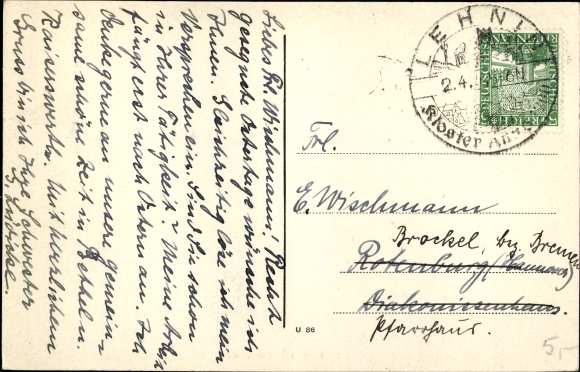 Liebes Frl. Wischmann! Recht
gesegnete Ostertage wünsche ich
Ihnen. Gleichzeitig löse ich mein
Versprechen ein. Sind Sie schon
in Ihrer Tätigkeit? Meine Arbeit
fängt erst nach Ostern an. Ich
denke gerne an unsere gemein-
same schöne Zeit in
Kaiserswerth. Mit herzlichem
Gruss bin ich Ihre Schwester
LEHNIN
2.4.
Kloster
Frl.
E. Wischmann
Brockel, bez. Bremen
Rotenburg (Hannover)
Diakonissenhaus.
Pfarrhaus.
U 86
5,-